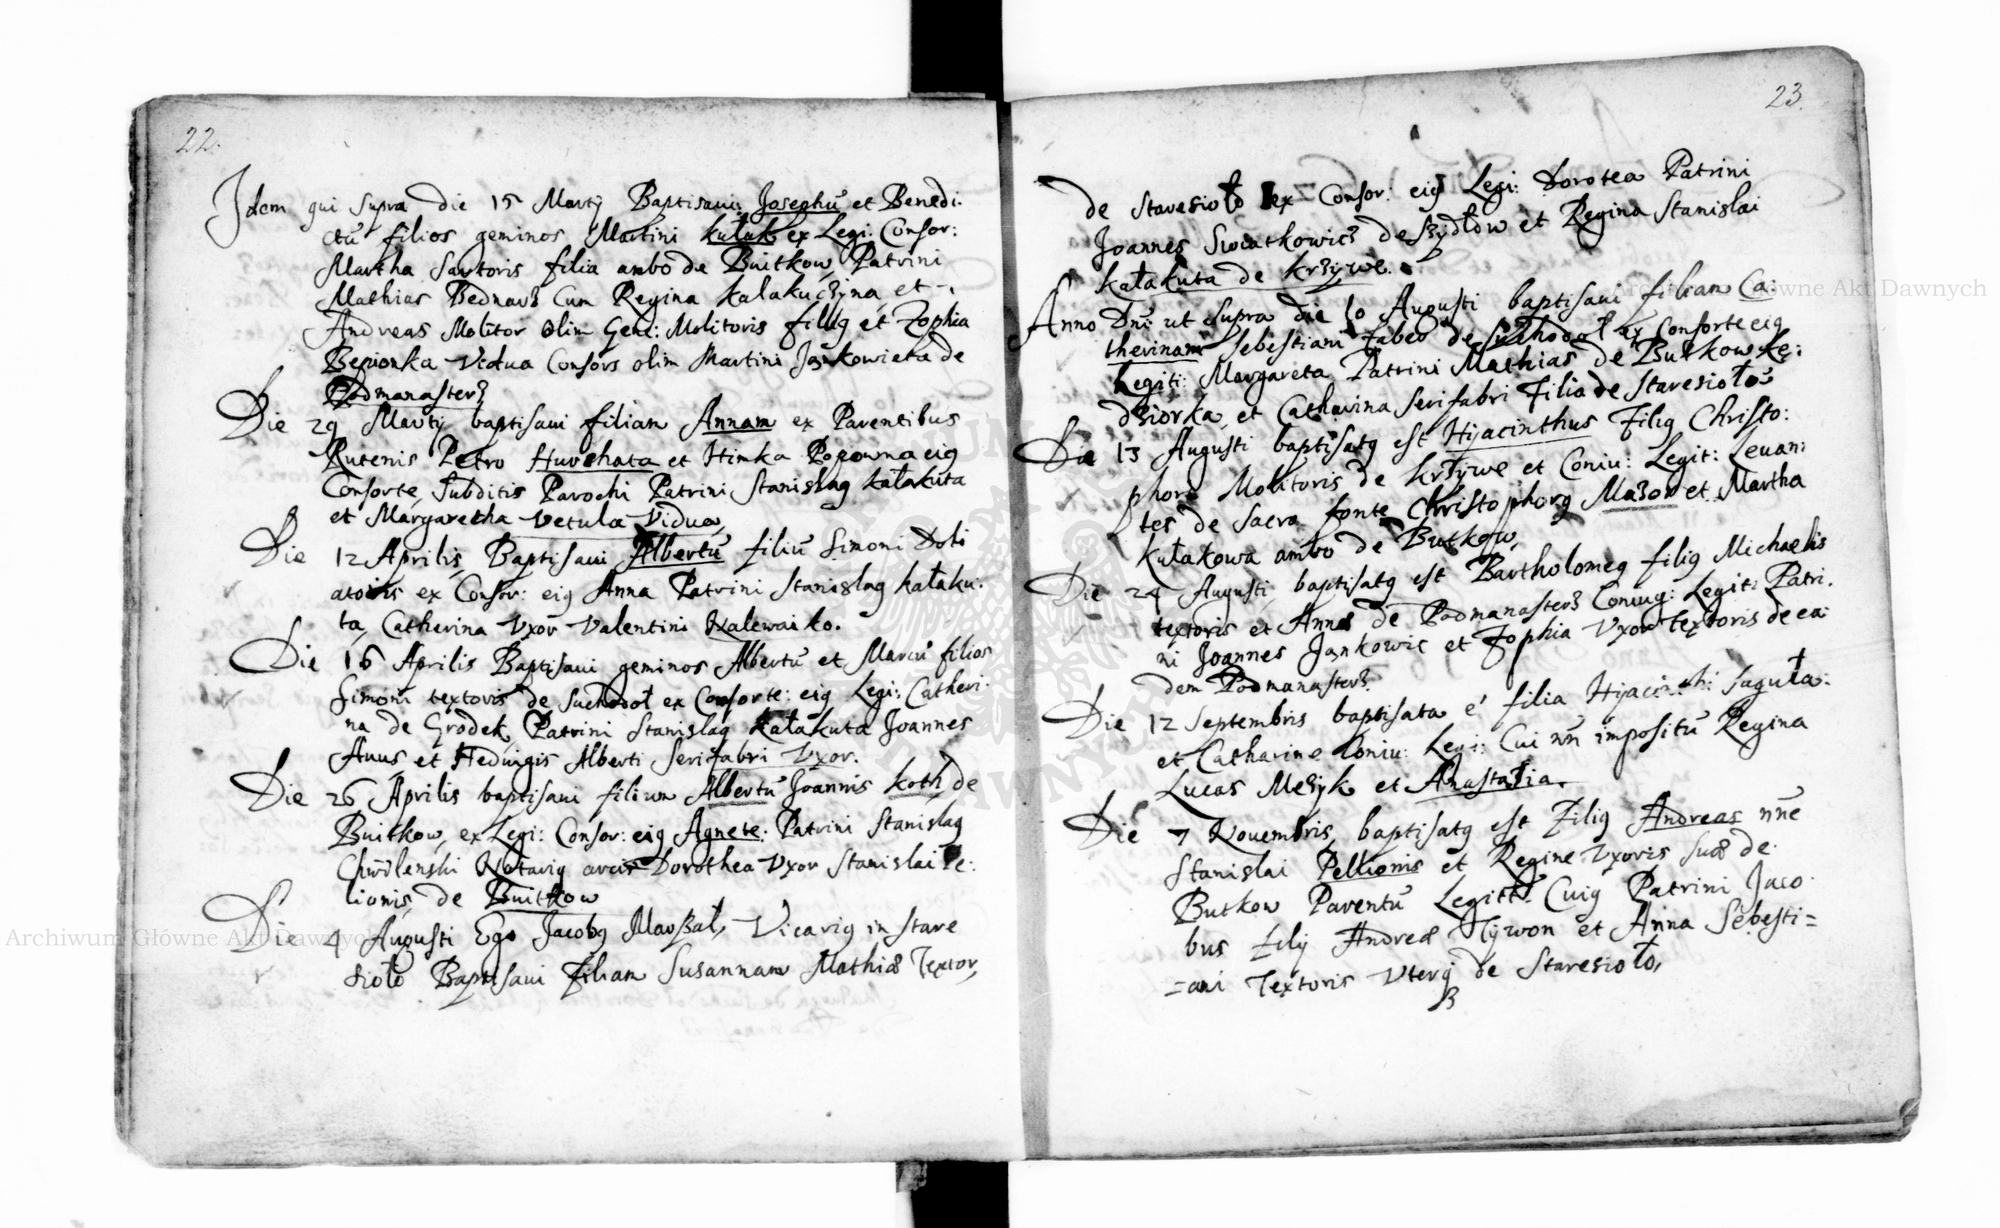 22.
Idem qui supra die 15 Martÿ Baptisaui Josephū et Benedi-
ctū filios geminos Martini kułak ex Legi: Consor:
Martha Sartoris filia ambo de Buitkow, Patrini
Mathias Bednarz Cum Regina kałakuczÿna, et
Andreas Molitor olim Gene: Molitoris filiꝰ et Zophia
vidua Consors olim Martini Jankowieta de
Podmanasterz
Die 29 Martÿ baptisaui filiam Annam ex Parentibus
Rutenis Petro Huvchata et Himka Popowna eiꝰ
Consorte, Subditis Parochi Patrini Stanislaꝰ kałakuta
et Margaretha vetula vidua,
Die 12 Aprilis, Baptisaui Albertū filiū Simoni Doli
atoris ex Consor: eiꝰ Anna Patrini Stanislaꝰ kałaku:
ta, Catherina Vxor Valentini Nalewaiko.
Die 16 Aprilis Baptisaui geminos Albertū et Marcū filios
Simoni textoris de Suchodoł ex Consorte: eiꝰ Legi: Catheri:
na de Grodek, Patrini Stanislaꝰ kałakuta Joannes
Auus et Hedwigis Alberti Serifabri Vxor.
Die 26 Aprilis baptisaui filium Albertū Joannis koth de
Buitkow, ex Legi: Consor: eiꝰ Agnete: Patrini Stanislaꝰ
Notariꝰ arcis Dorothea Vxor Stanislai Pe:
lionis, de Buitkow
Die 4 Augusti Ego Jacobꝰ Marszał, Vicariꝰ in Stare
siołо Baptisaui Filiam Susannam Mathiæ Textor,
23.
de Staresioło ex Consor: eiꝰ Legi: Dorotea Patrini
Joannes Swiatkowicz de Szÿdłow et Regina Stanislai
kałakuta de krzÿwe.
Anno Dni: ut supra die 10 Augusti baptisaui filiam Ca:
therinam Sebestiani fabro de Suchodoł ex Consorte eiꝰ
Legiti: Margareta Patrini Mathias de Butkow kę:
dziorka, et Catharina Serifabri Filia de Staresioło
Die 13 Augusti baptisatꝰ est Hijacinthus Filiꝰ Christo:
phori Molitoris de krzÿwe et Coniu: Legit: Leuan:
tes de Sacra fonte Christophorꝰ Mazor et Martha
kułakowa ambo de Butkow,
Die 24 Augusti, baptisatꝰ est Bartholomeꝰ filiꝰ Michaelis
textoris et Annæ de Podmanasterz Coniug: Legit: Patri:
ni Joannes Jankowic et Zophia Vxor textoris de ea:
dem Podmanasterz.
Die 12 Septembris baptisata é filia Hijacinthi Saguła:
et Catharine Coniu: Legi: Cui nn̄ impositū Regina
Lucas Mezyk et Anastasia.
Die 7 Nouembris, baptisatꝰ est Filiꝰ Andreas nn̄e
Stanislai Pellionis et Regine Vxoris suæ de
Butkow Parentū Legitī. Cuiꝰ Patrini Jaco:
bus filÿ Andreæ Hÿwon et Anna Sebesti=
=ani Textoris Vterq́ de Staresioło,